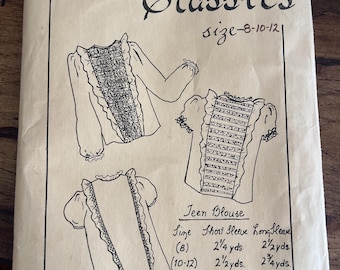 Classics
size-8-10-12
Teen Blouse
Size Short Sleeve Long Sleeve
(8) 2¼ yds 2½ yds.
(10-12) 2½ yds. 2¾ yds